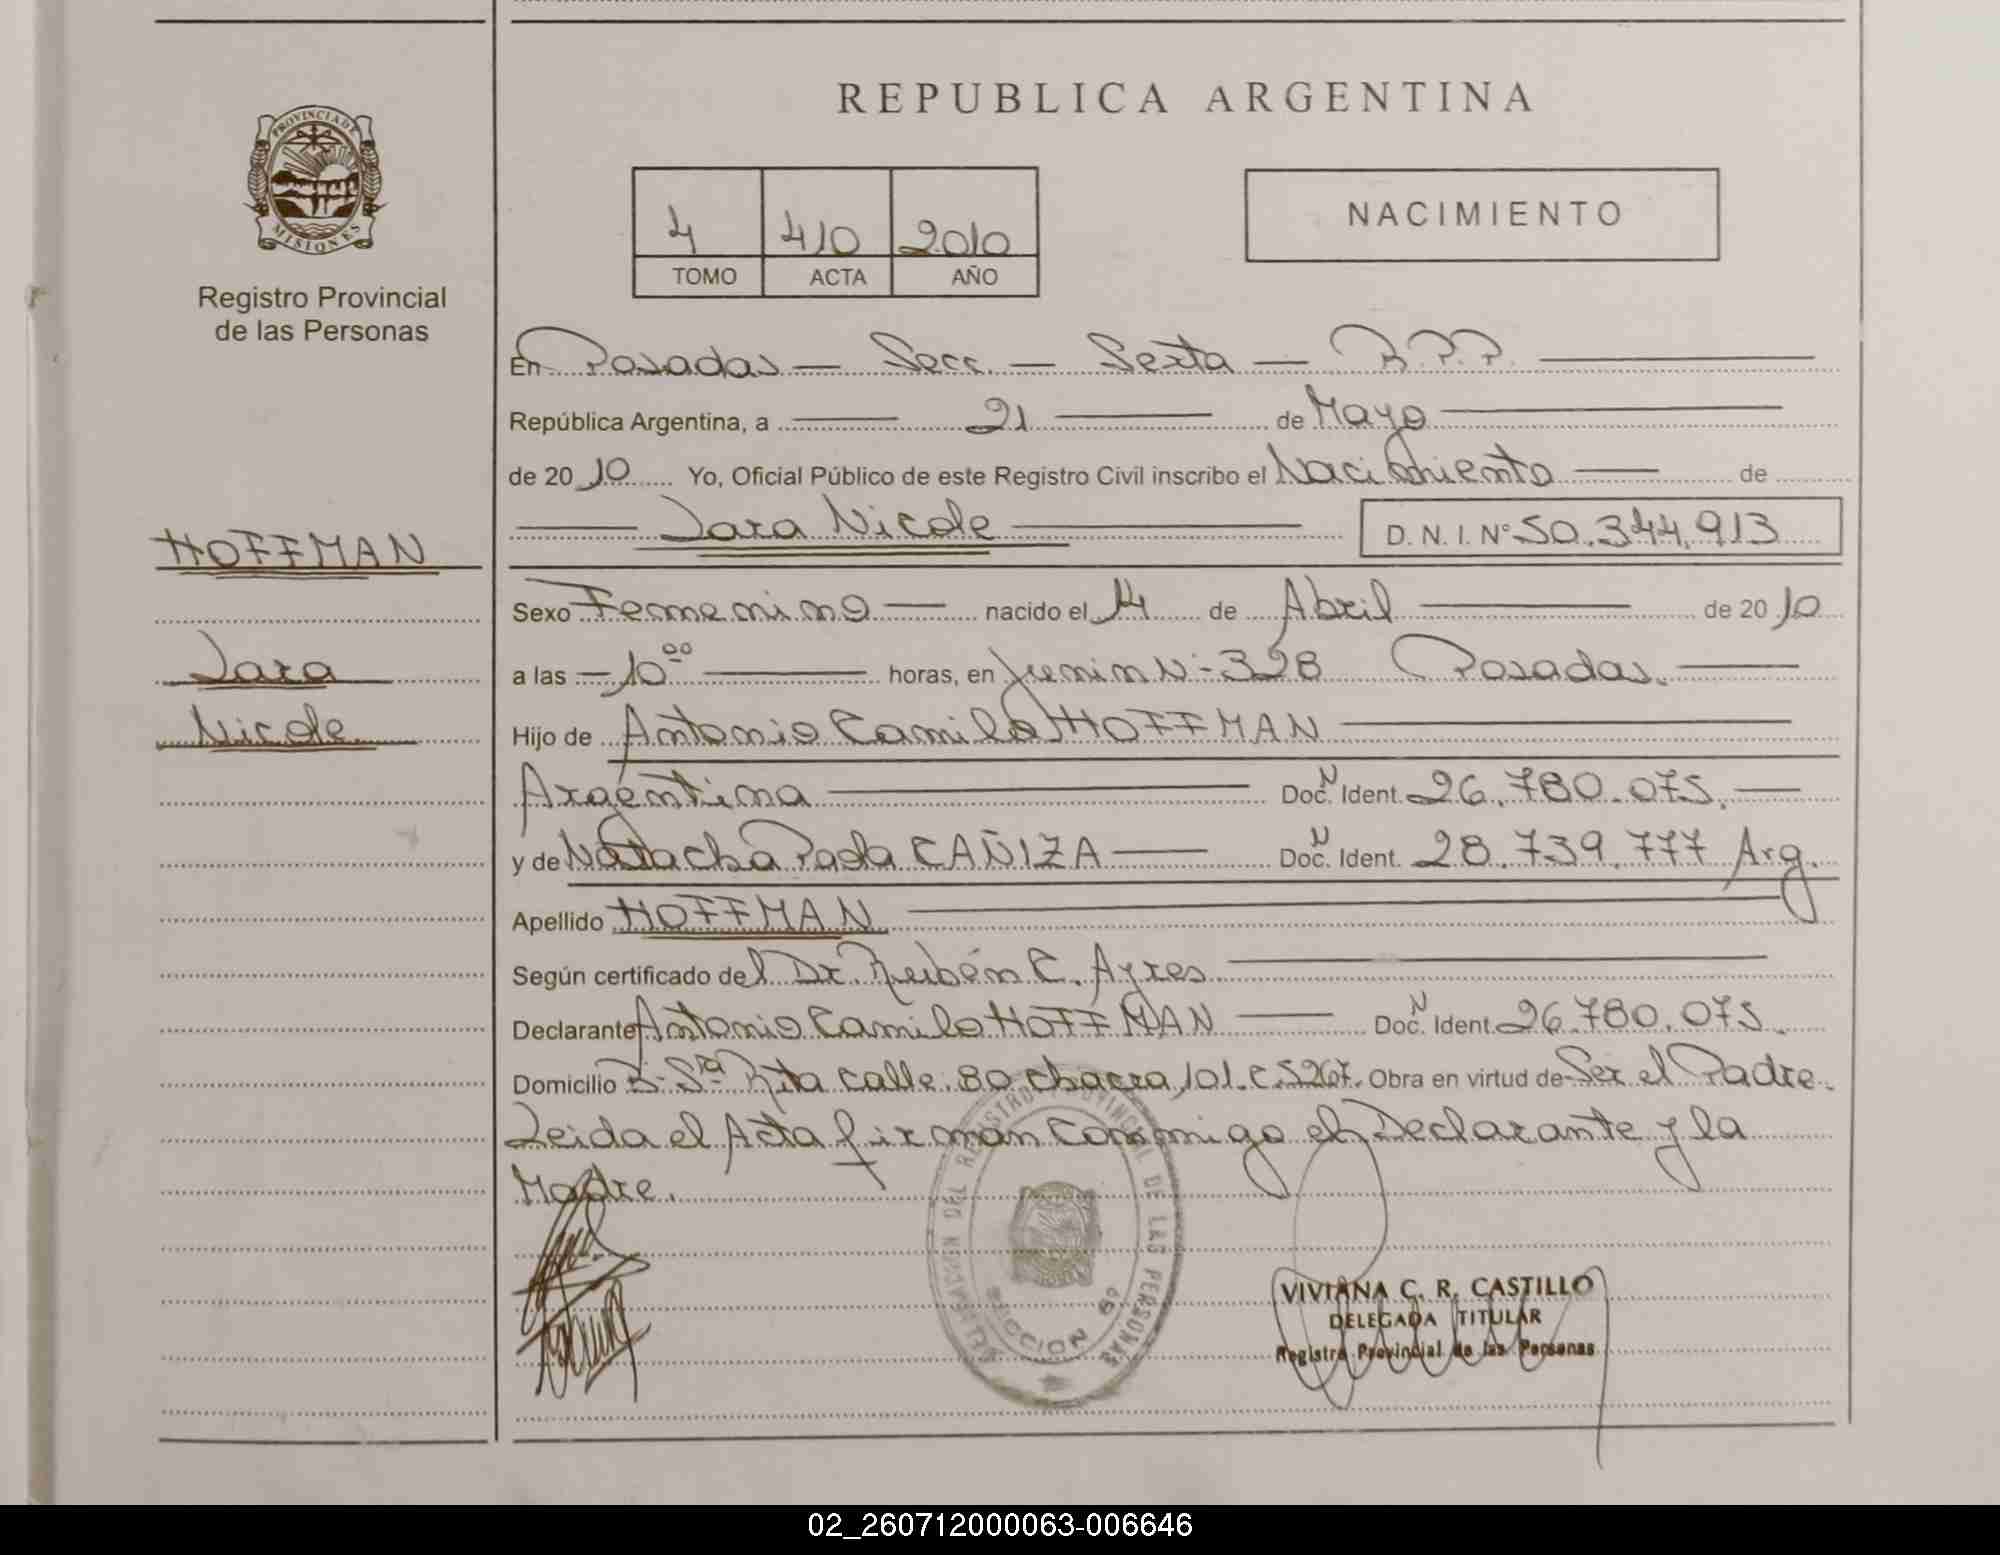 REPUBLICA ARGENTINA
PROVINCIA DE
MISIONES
Registro Provincial
de las Personas
4 410 2010
TOMO ACTA AÑO
NACIMIENTO
En Posadas — Secc. — Sexta — R.P.P.
República Argentina, a 21 de Mayo
de 2010 Yo, Oficial Público de este Registro Civil inscribo el Nacimiento de
Nicole D. N. I. Nº 50.344.913
HOFFMAN
Sexo Femenino nacido el de Abril de 2010
a las 10⁰⁰ horas, en Junin Nº 328 Posadas.
Nicole
Hijo de Antonio Camilo HOFFMAN
Argentina Doc. N Ident. 26.780.075.
y de Natacha Paola CAÑIZA Doc. N Ident. 28.739.777 Arg.
Apellido HOFFMAN
Según certificado del Dr. Rubén C. Ayres
Declarante Antonio Camilo HOFFMAN Doc. N Ident. 26.780.075.
Domicilio B- Sta Rita calle 80 chacra 101. C. 5267. Obra en virtud de Ser el Padre.
Leida el Acta firman Conmigo el Declarante y la
Madre.
DEL REGISTRO PROVINCIAL DE LAS PERSONAS
SECCION 6º
VIVIANA C. R. CASTILLO
DELEGADA TITULAR
Registro Provincial de las Personas
02_260712000063-006646